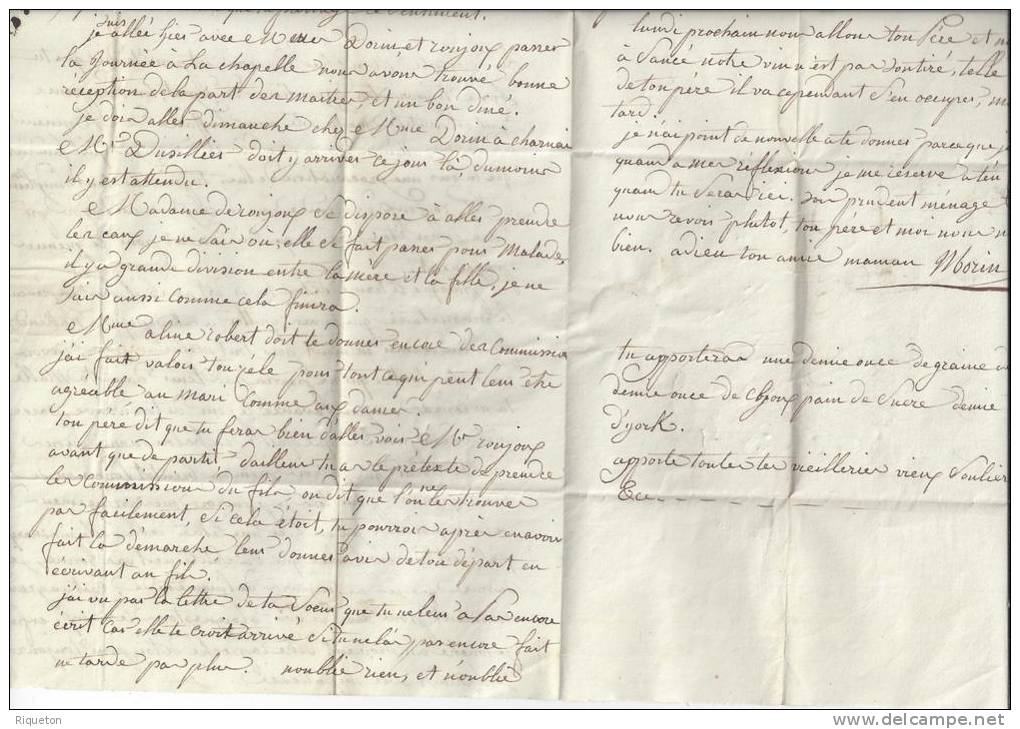 je suis allée hier avec Mmes Dorin et ronjoux passer
la Journée à La chapelle nous avons trouvé bonne
réception de la part des maitres, et un bon diné.
je dois aller dimanche chez Mme Dorin à charnai
Mr Dusillées doit y arriver ce jour là du moins
il y est attendu.
Madame de ronjoux se dispose à aller prendre
les eaux je ne Sais où, elle Se fait passer pour Malade,
il y a grande division entre la mère et la fille, je ne
Sais aussi comme cela finira.
Mme aline robert doit te donner encore des Commissio
j'ai fait valoir ton zèle pour tout ce qui peut leur etre
agréable au mari Comme aux dames.
ton pére dit que tu feras bien d'aller voir Mr ronjoux
avant que de partir d'ailleur tu as le prétexte de prendre
les Commissions du fils, on dit que l'on ne les trouve
pas facilement, Si cela étoit, tu pourrois après en avoir
fait la démarche leur donner avis de ton départ en
écrivant au fils.
j'ai vu par la lettre de ta Soeur que tu ne leur as pas encore
écrit Car elle te croit arrivé Si tu ne l'as pas encore fait
ne tarde pas plus. n'oublie rien, et n'oublie
lundi prochain nous allons ton Pére et m
à Sancé notre vin n'est pas soutiré, telle
de ton pére il va cependant S'en occuper, m
tard.
je n'ai point de nouvelle à te donner parce que j
quand a mes réflexions je me réserve à t'en
quand tu Seras ici. Sois prudent ménage
nous revoir plutot, ton pére et moi nous
bien. adieu ton amie maman Morin
tu apporteras une demie once de graine
demie once de choux pain de Sucre demie
d'york.
apporte toutes tes vieilleries vieux Soulier
&c
Riqueton
www.delcampe.net